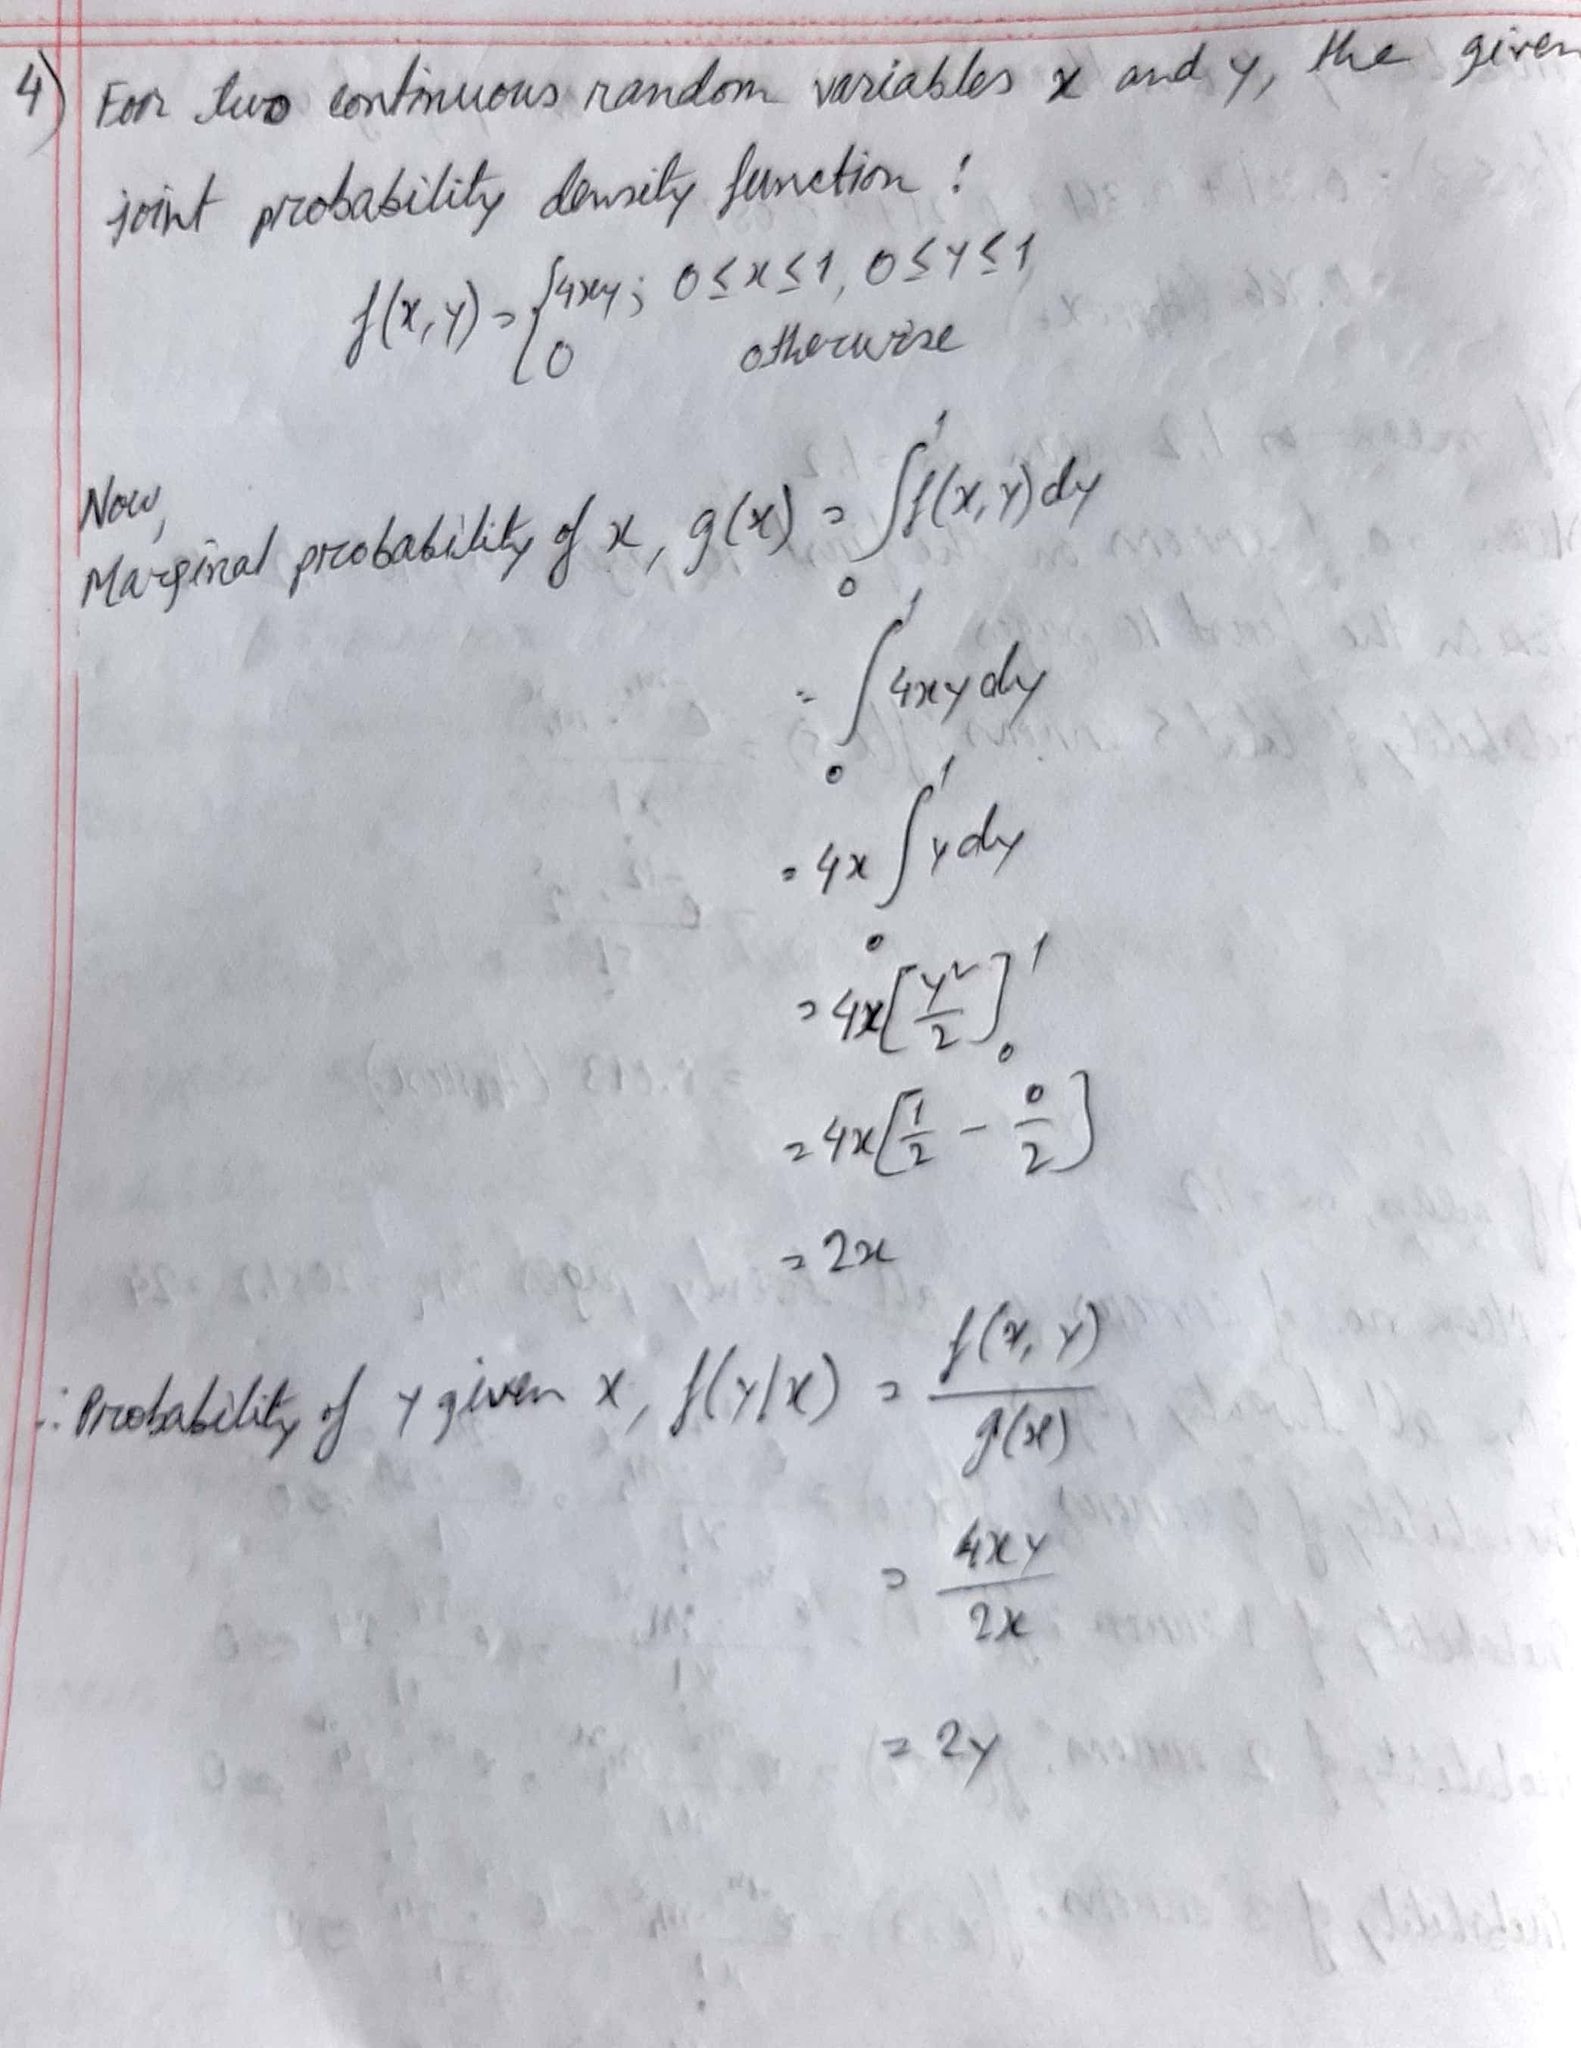 4) For two continuous random variables x and y, the given
joint probability density function :
f(x, y) = {4xy ; 0 ≤ x ≤ 1, 0 ≤ y ≤ 1
0 otherwise
Now,
Marginal probability of x, g(x) = ∫₀¹ f(x, y) dy
= ∫₀¹ 4xy dy
= 4x ∫₀¹ y dy
= 4x [y²/2]₀¹
= 4x [1/2 - 0/2]
= 2x
∴ Probability of y given x, f(y|x) = f(x, y)/g(x)
= 4xy/2x
= 2y